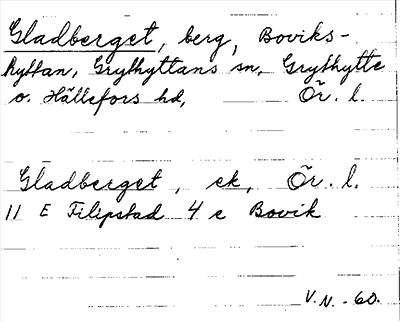 Gladberget, berg, Boviks-
hyttan, Grythyttans sn, Grythytte
o. Hällefors hd, Ör. l.
Gladberget, ek, Ör. l.
11 E Filipstad 4 e Bovik
V. N. - 60.